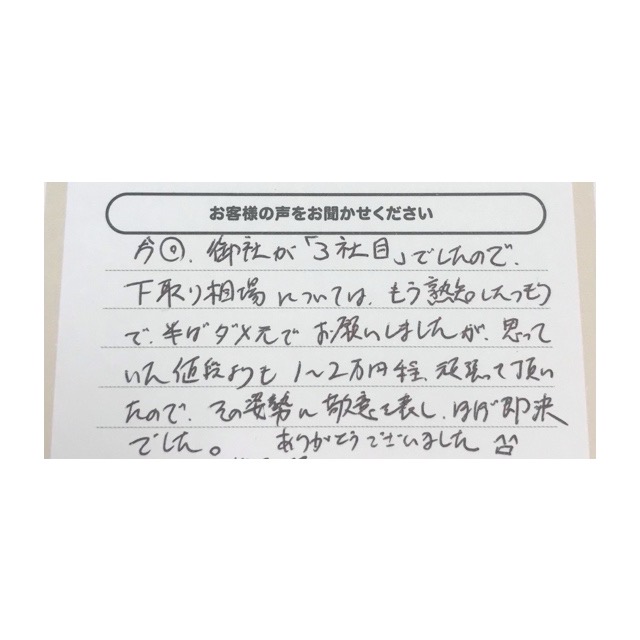 お客様の声をお聞かせください
今回、御社が「3社目」でしたので、
下取り相場については、もう熟知したつもり
で、半ばダメ元でお願いしましたが、思って
いた値段よりも1〜2万円程、頑張って頂い
たので、その姿勢に敬意を表し、ほぼ即決
でした。 ありがとうございました